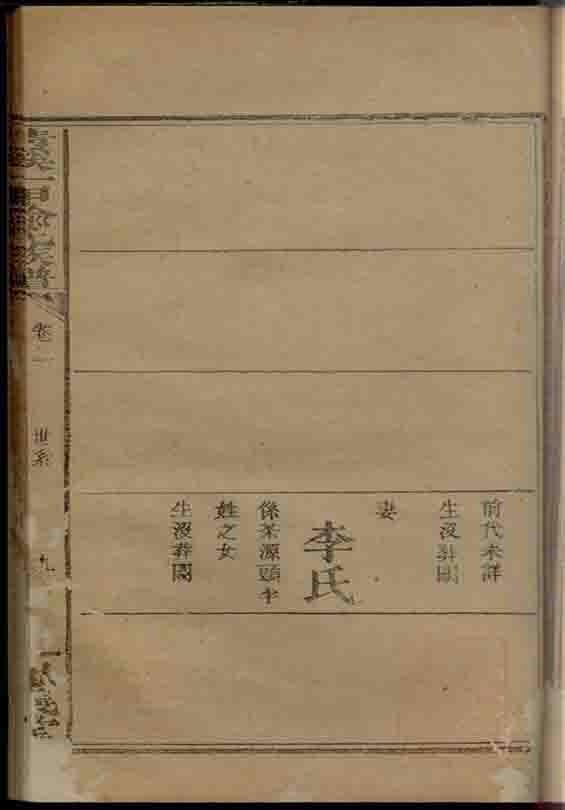 前代未詳
生沒葬闕
妻
李氏
係茶源頭李
姓之女
生沒葬闕
俞氏族譜
卷一
世系
九